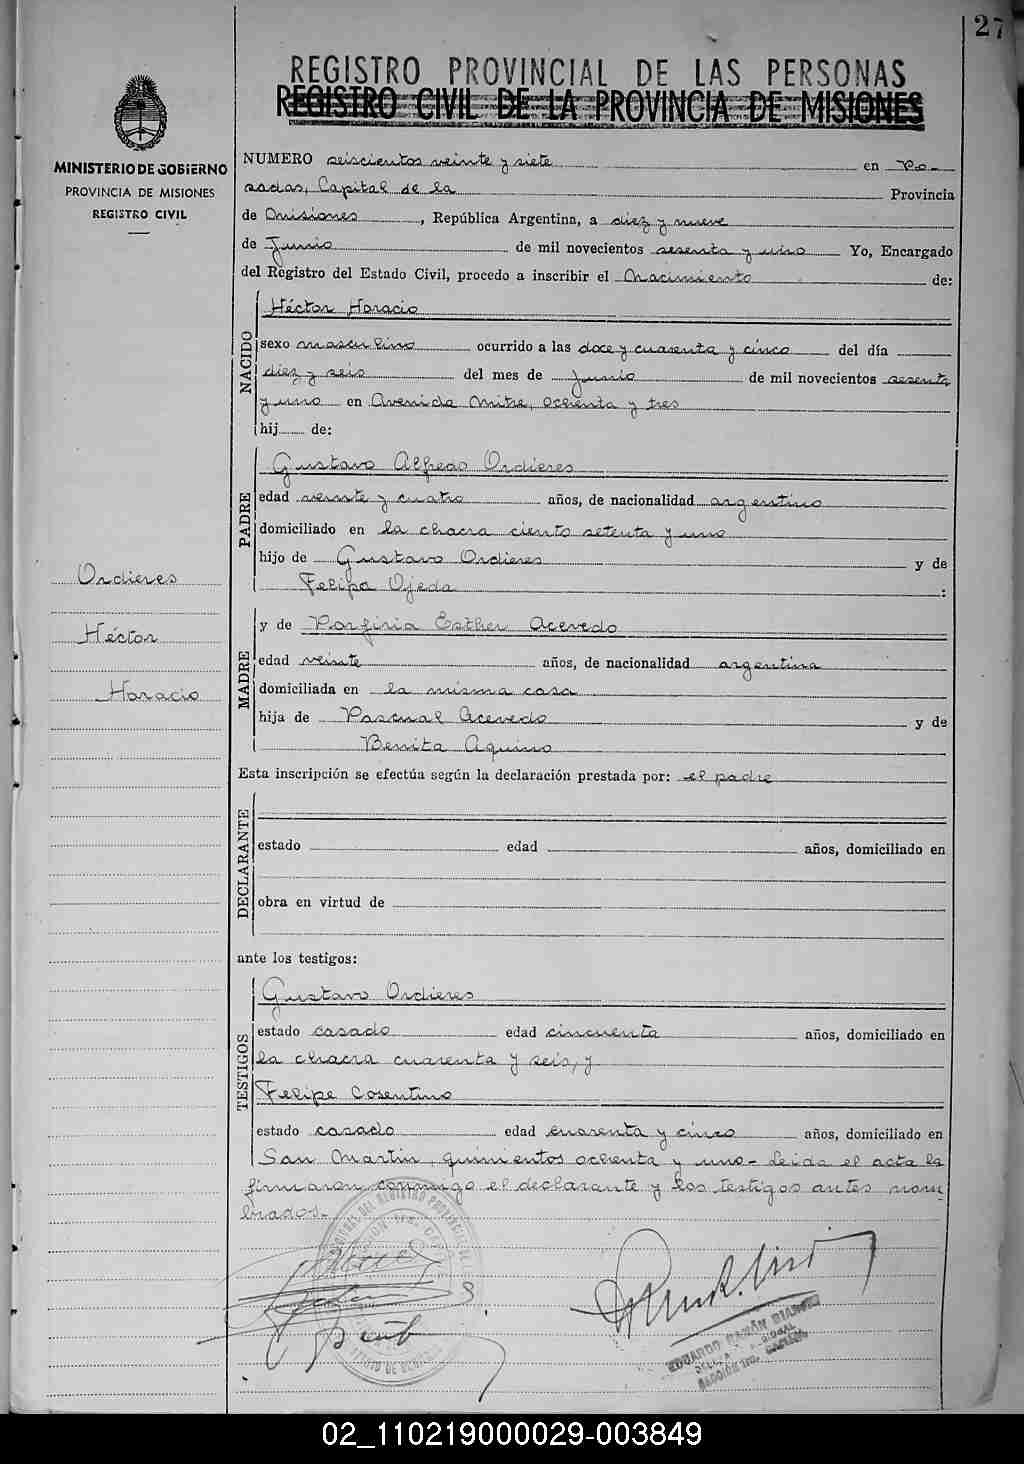 27
REGISTRO PROVINCIAL DE LAS PERSONAS
REGISTRO CIVIL DE LA PROVINCIA DE MISIONES
MINISTERIO DE GOBIERNO
PROVINCIA DE MISIONES
REGISTRO CIVIL
NUMERO seiscientos veinte y siete en Po-
sadas, Capital de la Provincia
de Misiones, República Argentina, a diez y nueve
de Junio de mil novecientos sesenta y uno Yo, Encargado
del Registro del Estado Civil, procedo a inscribir el Nacimiento de:
NACIDO
Héctor Horacio
sexo masculino ocurrido a las doce y cuarenta y cinco del día
diez y seis del mes de Junio de mil novecientos sesenta
y uno en Avenida Mitre, ochenta y tres
hij de:
PADRE
Gustavo Alfredo Ordieres
edad veinte y cuatro años, de nacionalidad argentino
domiciliado en la chacra ciento setenta y uno
hijo de Gustavo Ordieres y de
Felipa Ojeda :
Ordieres
Héctor
Horacio
MADRE
y de Porfiria Esther Acevedo
edad veinte años, de nacionalidad argentina
domiciliada en la misma casa
hija de Pascual Acevedo y de
Benita Aquino
Esta inscripción se efectúa según la declaración prestada por: el padre
DECLARANTE
estado edad años, domiciliado en
obra en virtud de
ante los testigos:
TESTIGOS
Gustavo Ordieres
estado casado edad cincuenta años, domiciliado en
la chacra cuarenta y seis, y
Felipe Cosentino
estado casado edad cuarenta y cinco años, domiciliado en
San Martin, quinientos ochenta y uno- Leida el acta la
firmaron conmigo el declarante y los testigos antes nom
brados.-
EDUARDO RAMÓN
02_110219000029-003849